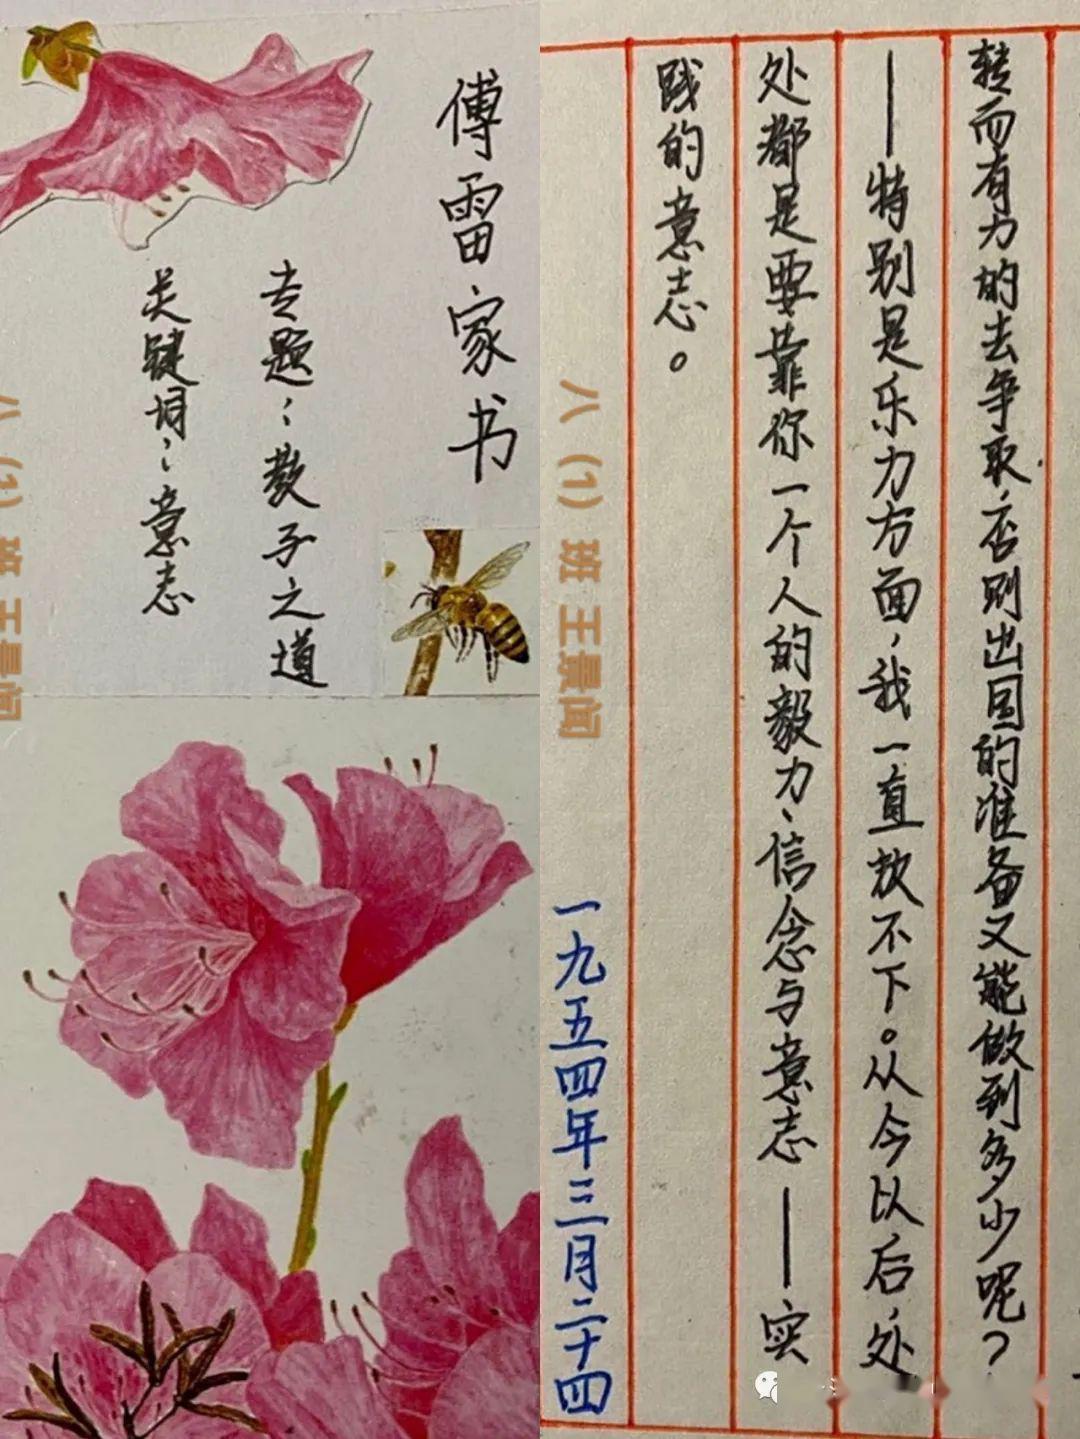 傅雷家书
专题：教子之道
关键词：意志
八（1）班 王景闻
转而有力的去争取，否则出国的准备又能做到多少呢？
——特别是乐力方面，我一直放不下。从今以后，处
处都是要靠你一个人的毅力、信念与意志——实
践的意志。
八（1）班 王景闻
一九五四年三月二十四